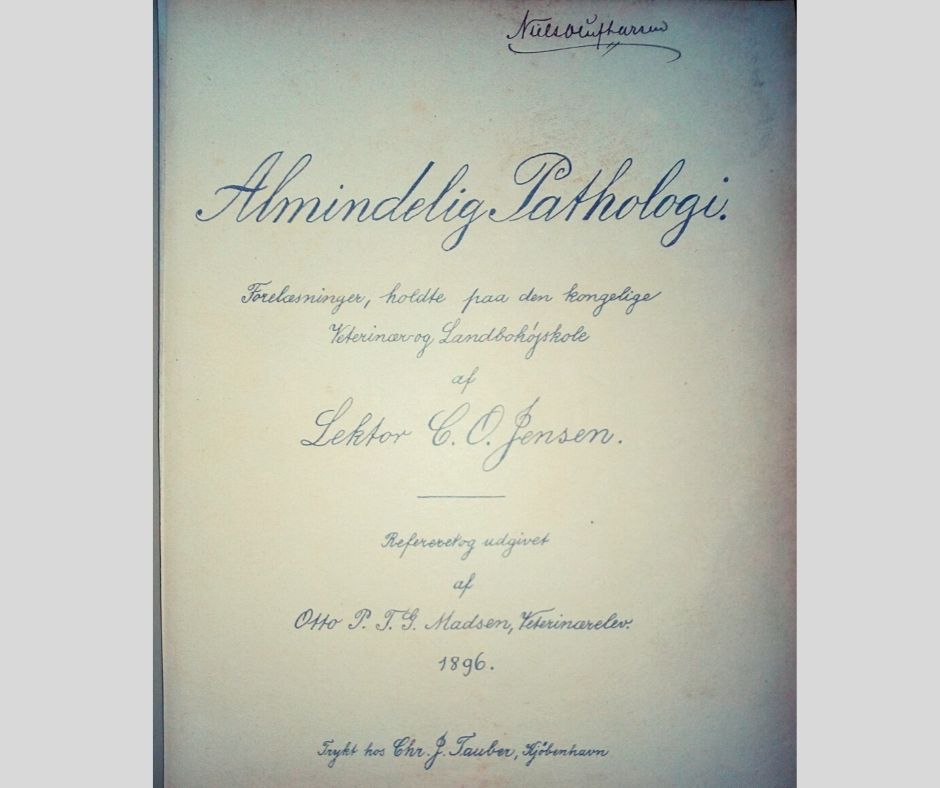 Niels Oluf Larsen
Almindelig Pathologi.
Forelæsninger, holdte paa den kongelige
Veterinær-og Landbohöjskole
af
Lektor C. O. Jensen.
Refereret og udgivet
af
Otto P. T. G. Madsen, Veterinærelev.
1896.
Trykt hos Chr. J. Tauber, Kjöbenhavn